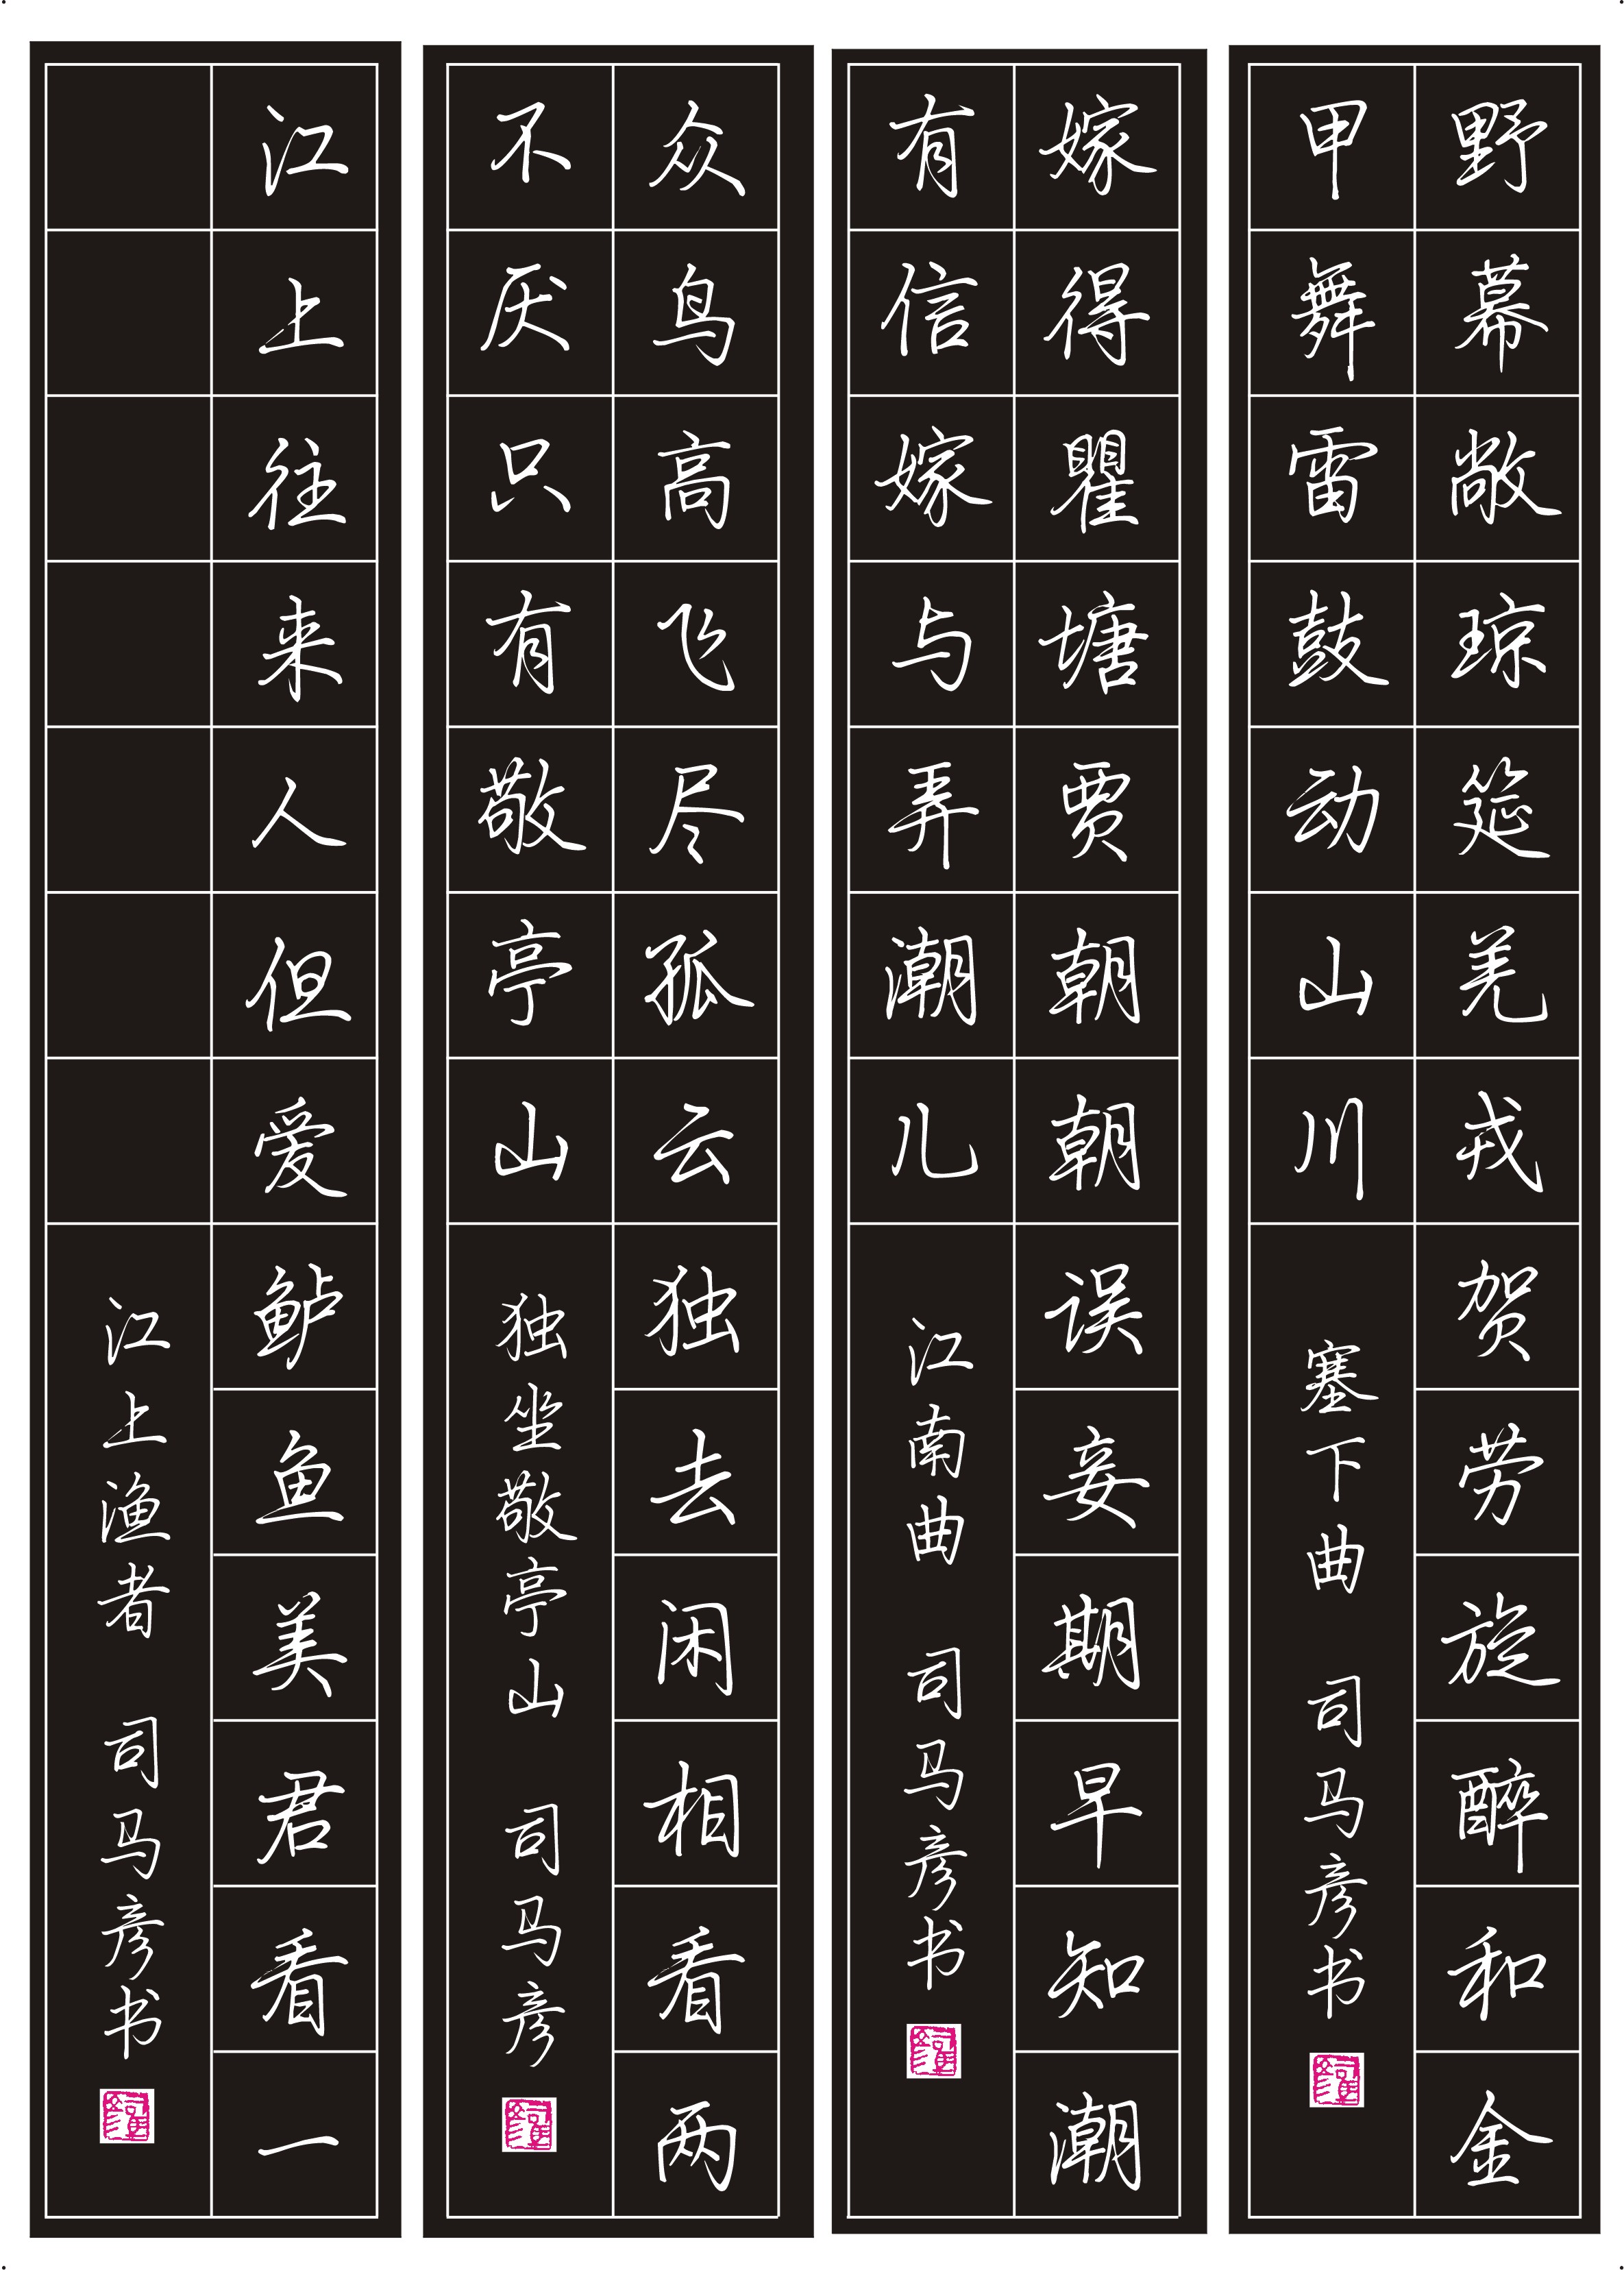 野幕敞琼筵羌戎贺劳旋醉和金
甲舞雷鼓动山川
塞下曲 司马彦书
嫁得瞿塘贾朝朝误妾期早知潮
有信嫁与弄潮儿
江南曲 司马彦书
众鸟高飞尽孤云独去闲相看两
不厌只有敬亭山
独坐敬亭山 司马彦
江上往来人但爱鲈鱼美君看一
江上渔者 司马彦书